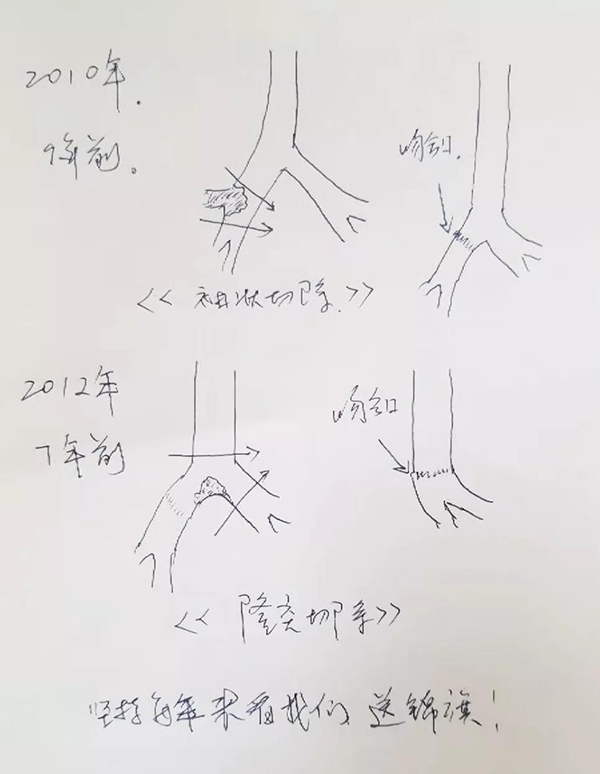 2010年.
9年前.
吻合口.
<<袖状切除.>>
2012年
7年前
吻合口
<<隆突切除>>
坚持每年来看我们,送锦旗!